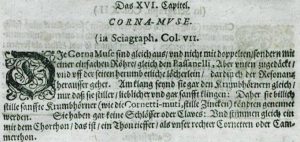 Das XVI. Capitel.
CORNA-MUSE.
(in Sciagraph. Col. VII.
Die Corna Muse sind gleich aus/ und nicht mit doppelten/ sondern mit
einer einfachen Röhre/ gleich den Bassanelli, Aber unten zugedeckt/
und uff der seiten herumb etliche löcherlein/ dardurch der Resonanz
heraus her gehet. Am klang seynd sie gar den Krumbhörnern gleich/
nur daß sie stiller/ lieblicher und gar sanfft klingen: Daher sie billich
stille sanffte Krumbhörner (wie die Cornetti muti, stille Zincken) köndten genennet
werden. Sie haben gar keine Schlösser oder Claves: Und stimmen gleich ein
mit dem Chorthon/ das ist/ ein Thon tieffer/ als unser rechter Cornetten oder Cam-
merthon.